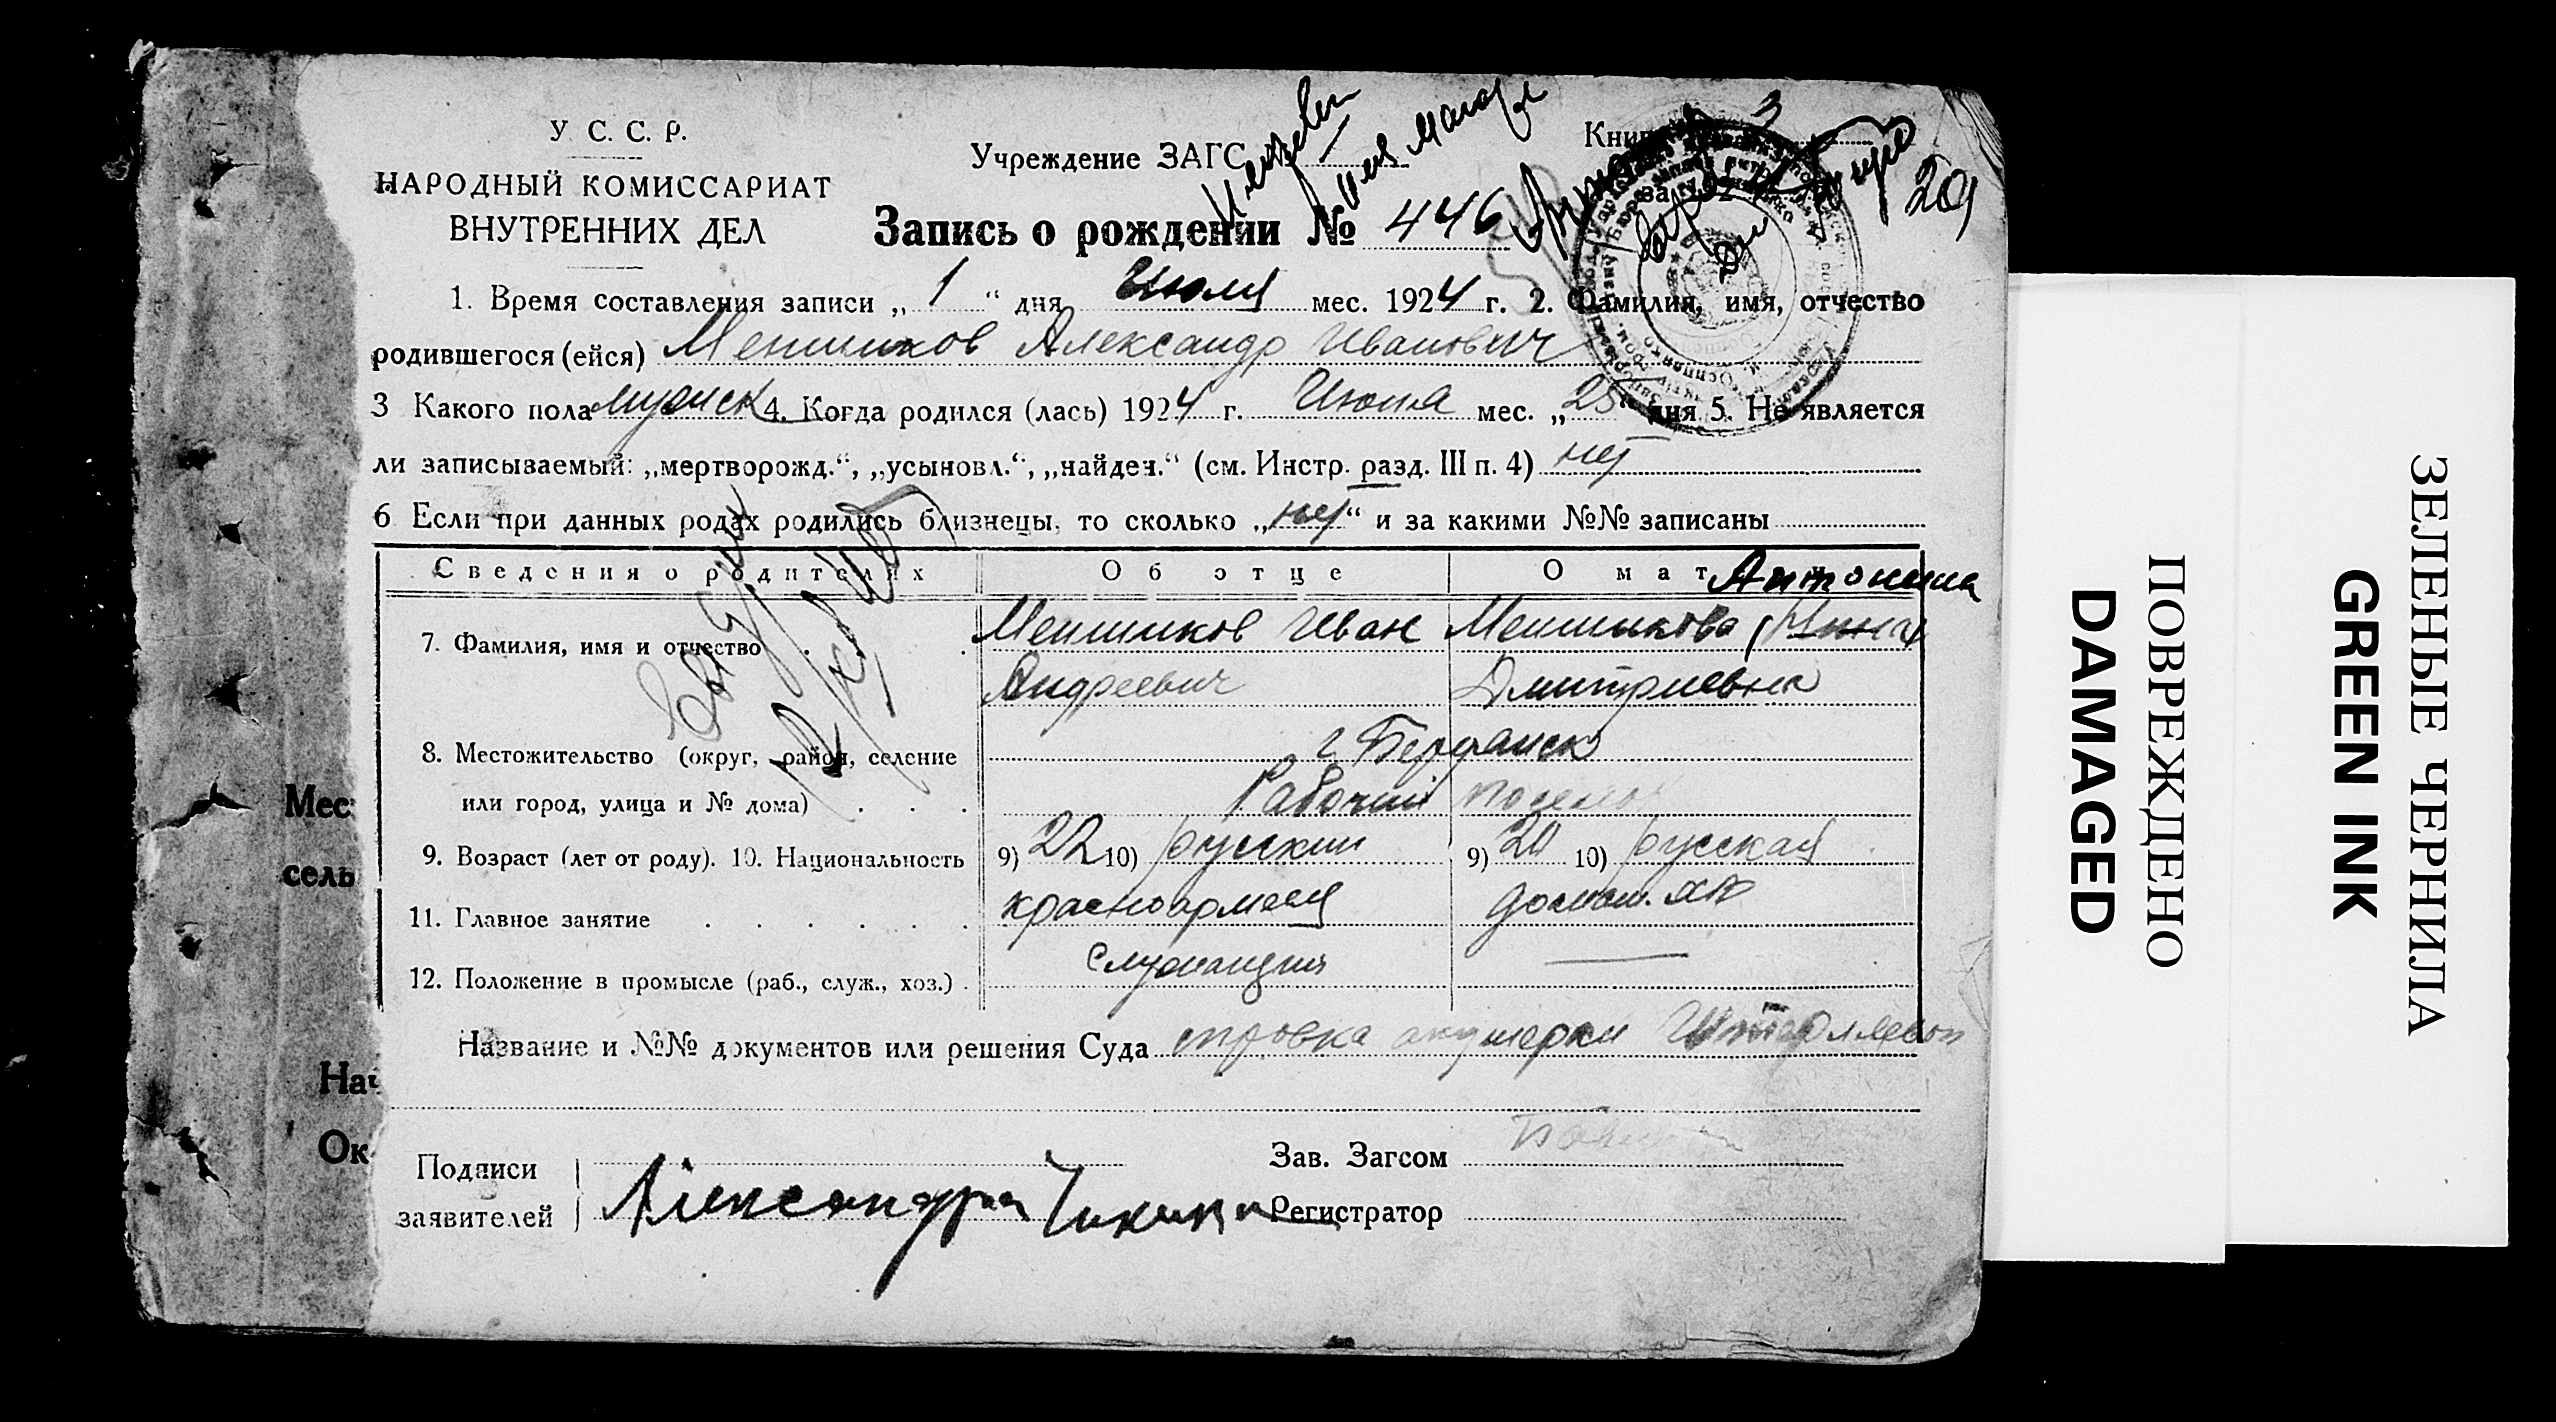 У. С. С. Р.
НАРОДНЫЙ КОМИССАРИАТ
ВНУТРЕННИХ ДЕЛ
Учреждение ЗАГС
Запись о рождении № 446
29
1. Время составления записи „ 1 “ дня Июля мес. 1924 г. 2. Фамилия, имя, отчество
родившегося (ейся) Меншиков Александр Иванович
3 Какого пола мужск 4. Когда родился (лась) 1924 г. Июня мес. „ 25 “ дня 5. Не является
ли записываемый: „мертворожд.“, „усыновл.“, „найден.“ (см. Инстр. разд. III п. 4) нет
6 Если при данных родах родились близнецы, то сколько „ нет “ и за какими №№ записаны
Сведения о родителях Об отце О мат
Антонина
7. Фамилия, имя и отчество Меншиков Иван Меншикова (Нина)
Андреевич Дмитриевна
8. Местожительство (округ, район, селение г Бердянск
или город, улица и № дома) Рабочий поселок
9. Возраст (лет от роду). 10. Национальность 9) 22 10) русский 9) 20 10) русская
11. Главное занятие красноармеец домаш. хоз
12. Положение в промысле (раб., служ., хоз.) служащий
Название и №№ документов или решения Суда справка акушерки
Подписи
заявителей
Александра
Зав. Загсом
Регистратор
Мес
сель
Нач
Ок
ПОВРЕЖДЕНО
DAMAGED
ЗЕЛЕНЫЕ ЧЕРНИЛА
GREEN INK